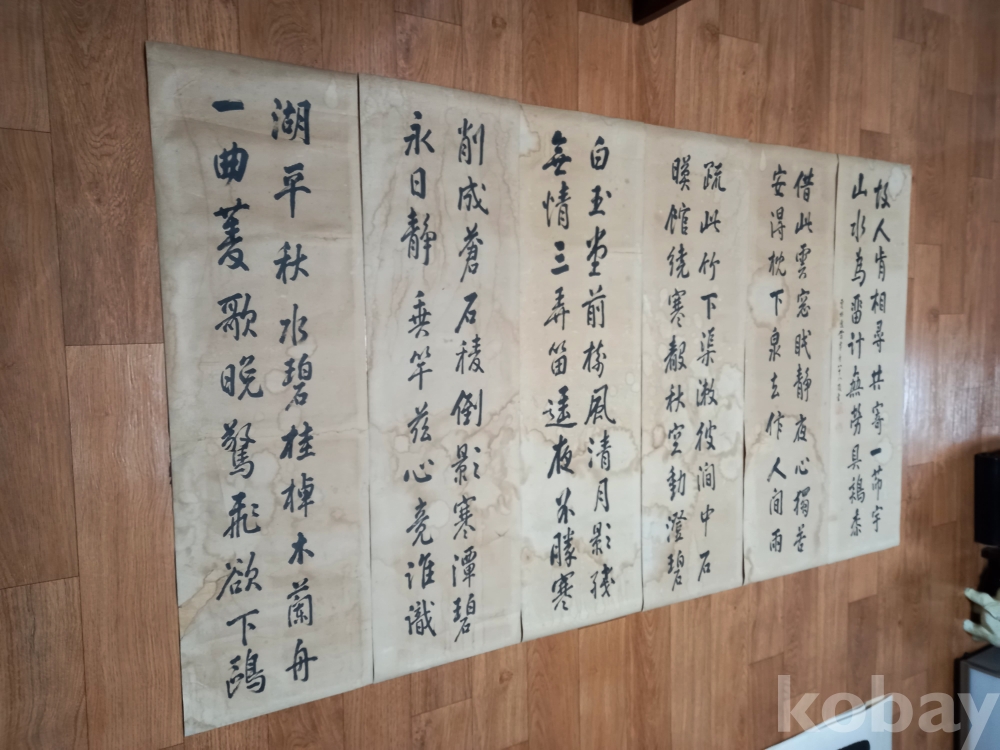 故人肯相尋共寄一茆宇
山水為畱計無勞具鷄黍
借此雲窓眠靜夜心獨苦
安得枕下泉去作人間雨
疏此竹下渠漱彼澗中石
暎館繞寒聲秋空動澄碧
白玉堂前樹風清月影殘
無情三弄笛遥夜不勝寒
削成蒼石稜倒影寒潭碧
永日靜垂竿茲心竟誰識
湖平秋水碧桂棹木蘭舟
一曲菱歌晚驚飛欲下鷗
kobay